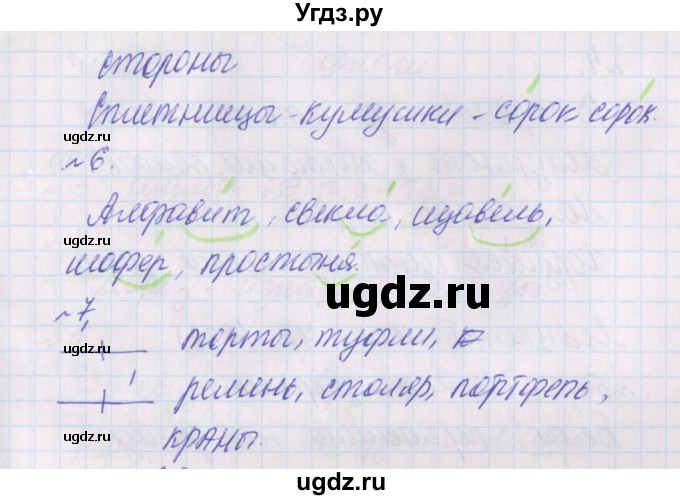 Угдз.ру
стороны
Сплетницы-кумушки - сорок сорок.
©ugdz.ru
№6.
Алфавит, свекла, щавель,
шофёр, простыня.
ugdz.ru
№7.
торты, туфли,
ремень, столяр, портфель,
краны.